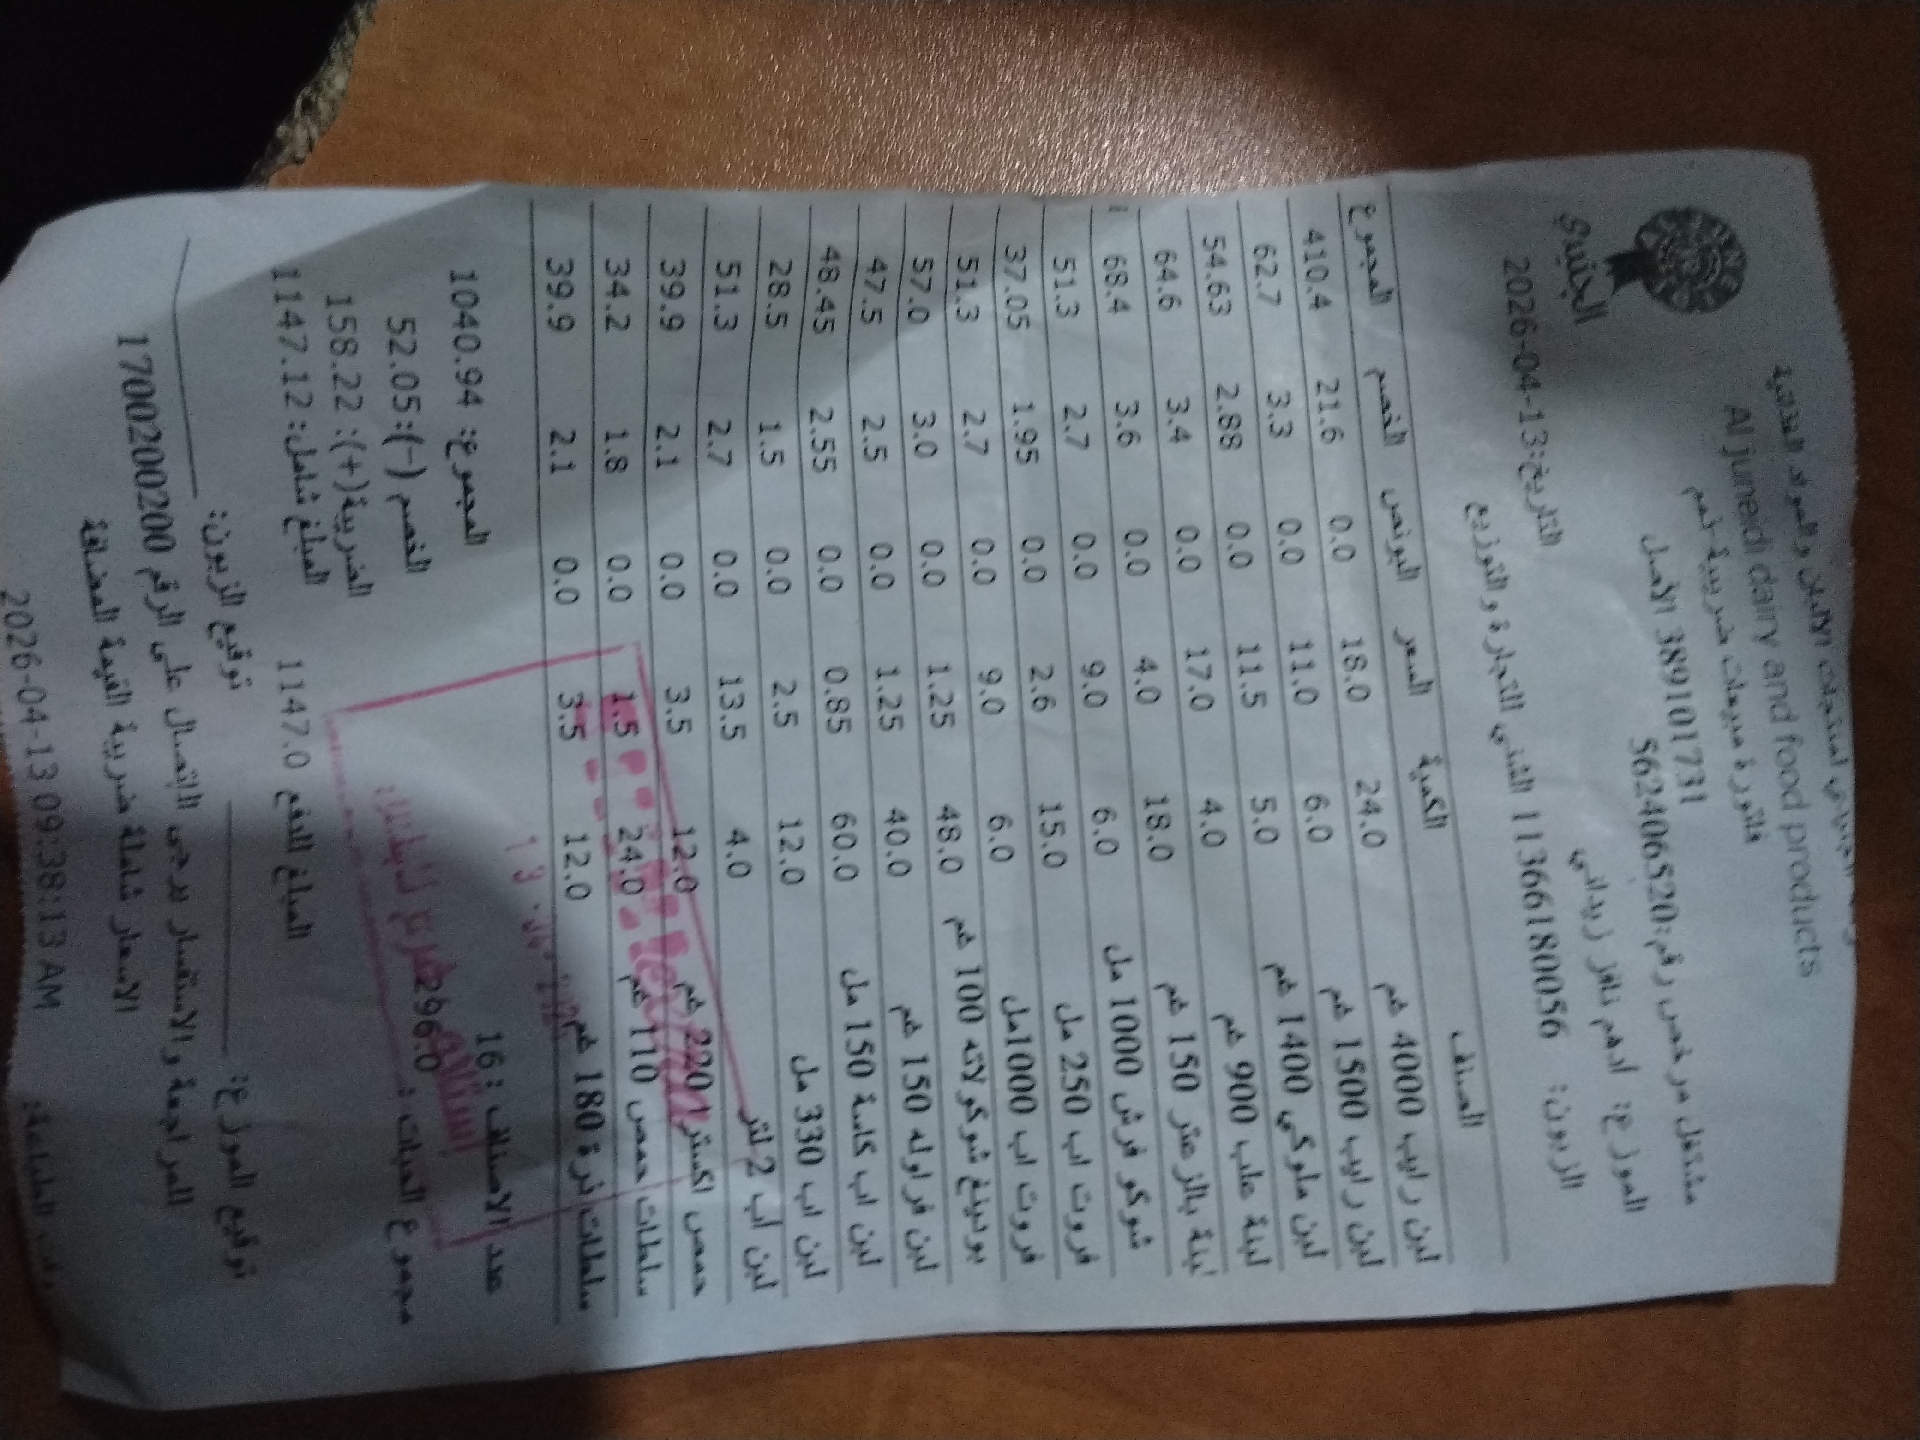 الجنيدي لمنتجات الالبان والمواد الغذائية
Al juneidi dairy and food products
الجنيدي
فاتورة مبيعات ضريبية رقم
389101731 الاصل
مشتغل مرخص رقم:562406520
الموزع: ادهم نافز زيداني
الزبون: 113661800056 الثني التجارة والتوزيع
التاريخ:13-04-2026
الصنف الكمية السعر البونص الخصم المجموع
لبن رايب 4000 غم 24.0 18.0 0.0 21.6 410.4
لبن رايب 1500 غم 6.0 11.0 0.0 3.3 62.7
لبن ملوكي 1400 غم 5.0 11.5 0.0 2.88 54.63
لبنة علب 900 غم 4.0 17.0 0.0 3.4 64.6
لبنة بالزعتر 150 غم 18.0 4.0 0.0 3.6 68.4
شوكو فرش 1000 مل 6.0 9.0 0.0 2.7 51.3
فروت اب 250 مل 15.0 2.6 0.0 1.95 37.05
فروت اب 1000مل 6.0 9.0 0.0 2.7 51.3
بودينغ شوكولاته 100 غم 48.0 1.25 0.0 3.0 57.0
لبن فراوله 150 غم 40.0 1.25 0.0 2.5 47.5
لبن اب كاسة 150 مل 60.0 0.85 0.0 2.55 48.45
لبن اب 330 مل 12.0 2.5 0.0 1.5 28.5
لبن اب 2 لتر 4.0 13.5 0.0 2.7 51.3
حمص اكسترا 220 غم 12.0 3.5 0.0 2.1 39.9
سلطات حمص 110 غم 24.0 1.5 0.0 1.8 34.2
سلطات ذرة 180 غم 12.0 3.5 0.0 2.1 39.9
عدد الاصناف :16
المجموع: 1040.94
مجموع الحبات : 296.0
الخصم (-):52.05
الضريبة(+): 158.22
المبلغ الدفع 1147.0
المبلغ شامل: 1147.12
استلام
توقيع الموزع:
توقيع الزبون:
للمراجعة والاستفسار يرجى الاتصال على الرقم 1700200200
الاسعار شاملة ضريبة القيمة المضافة
2026-04-13 09:38:13 AM